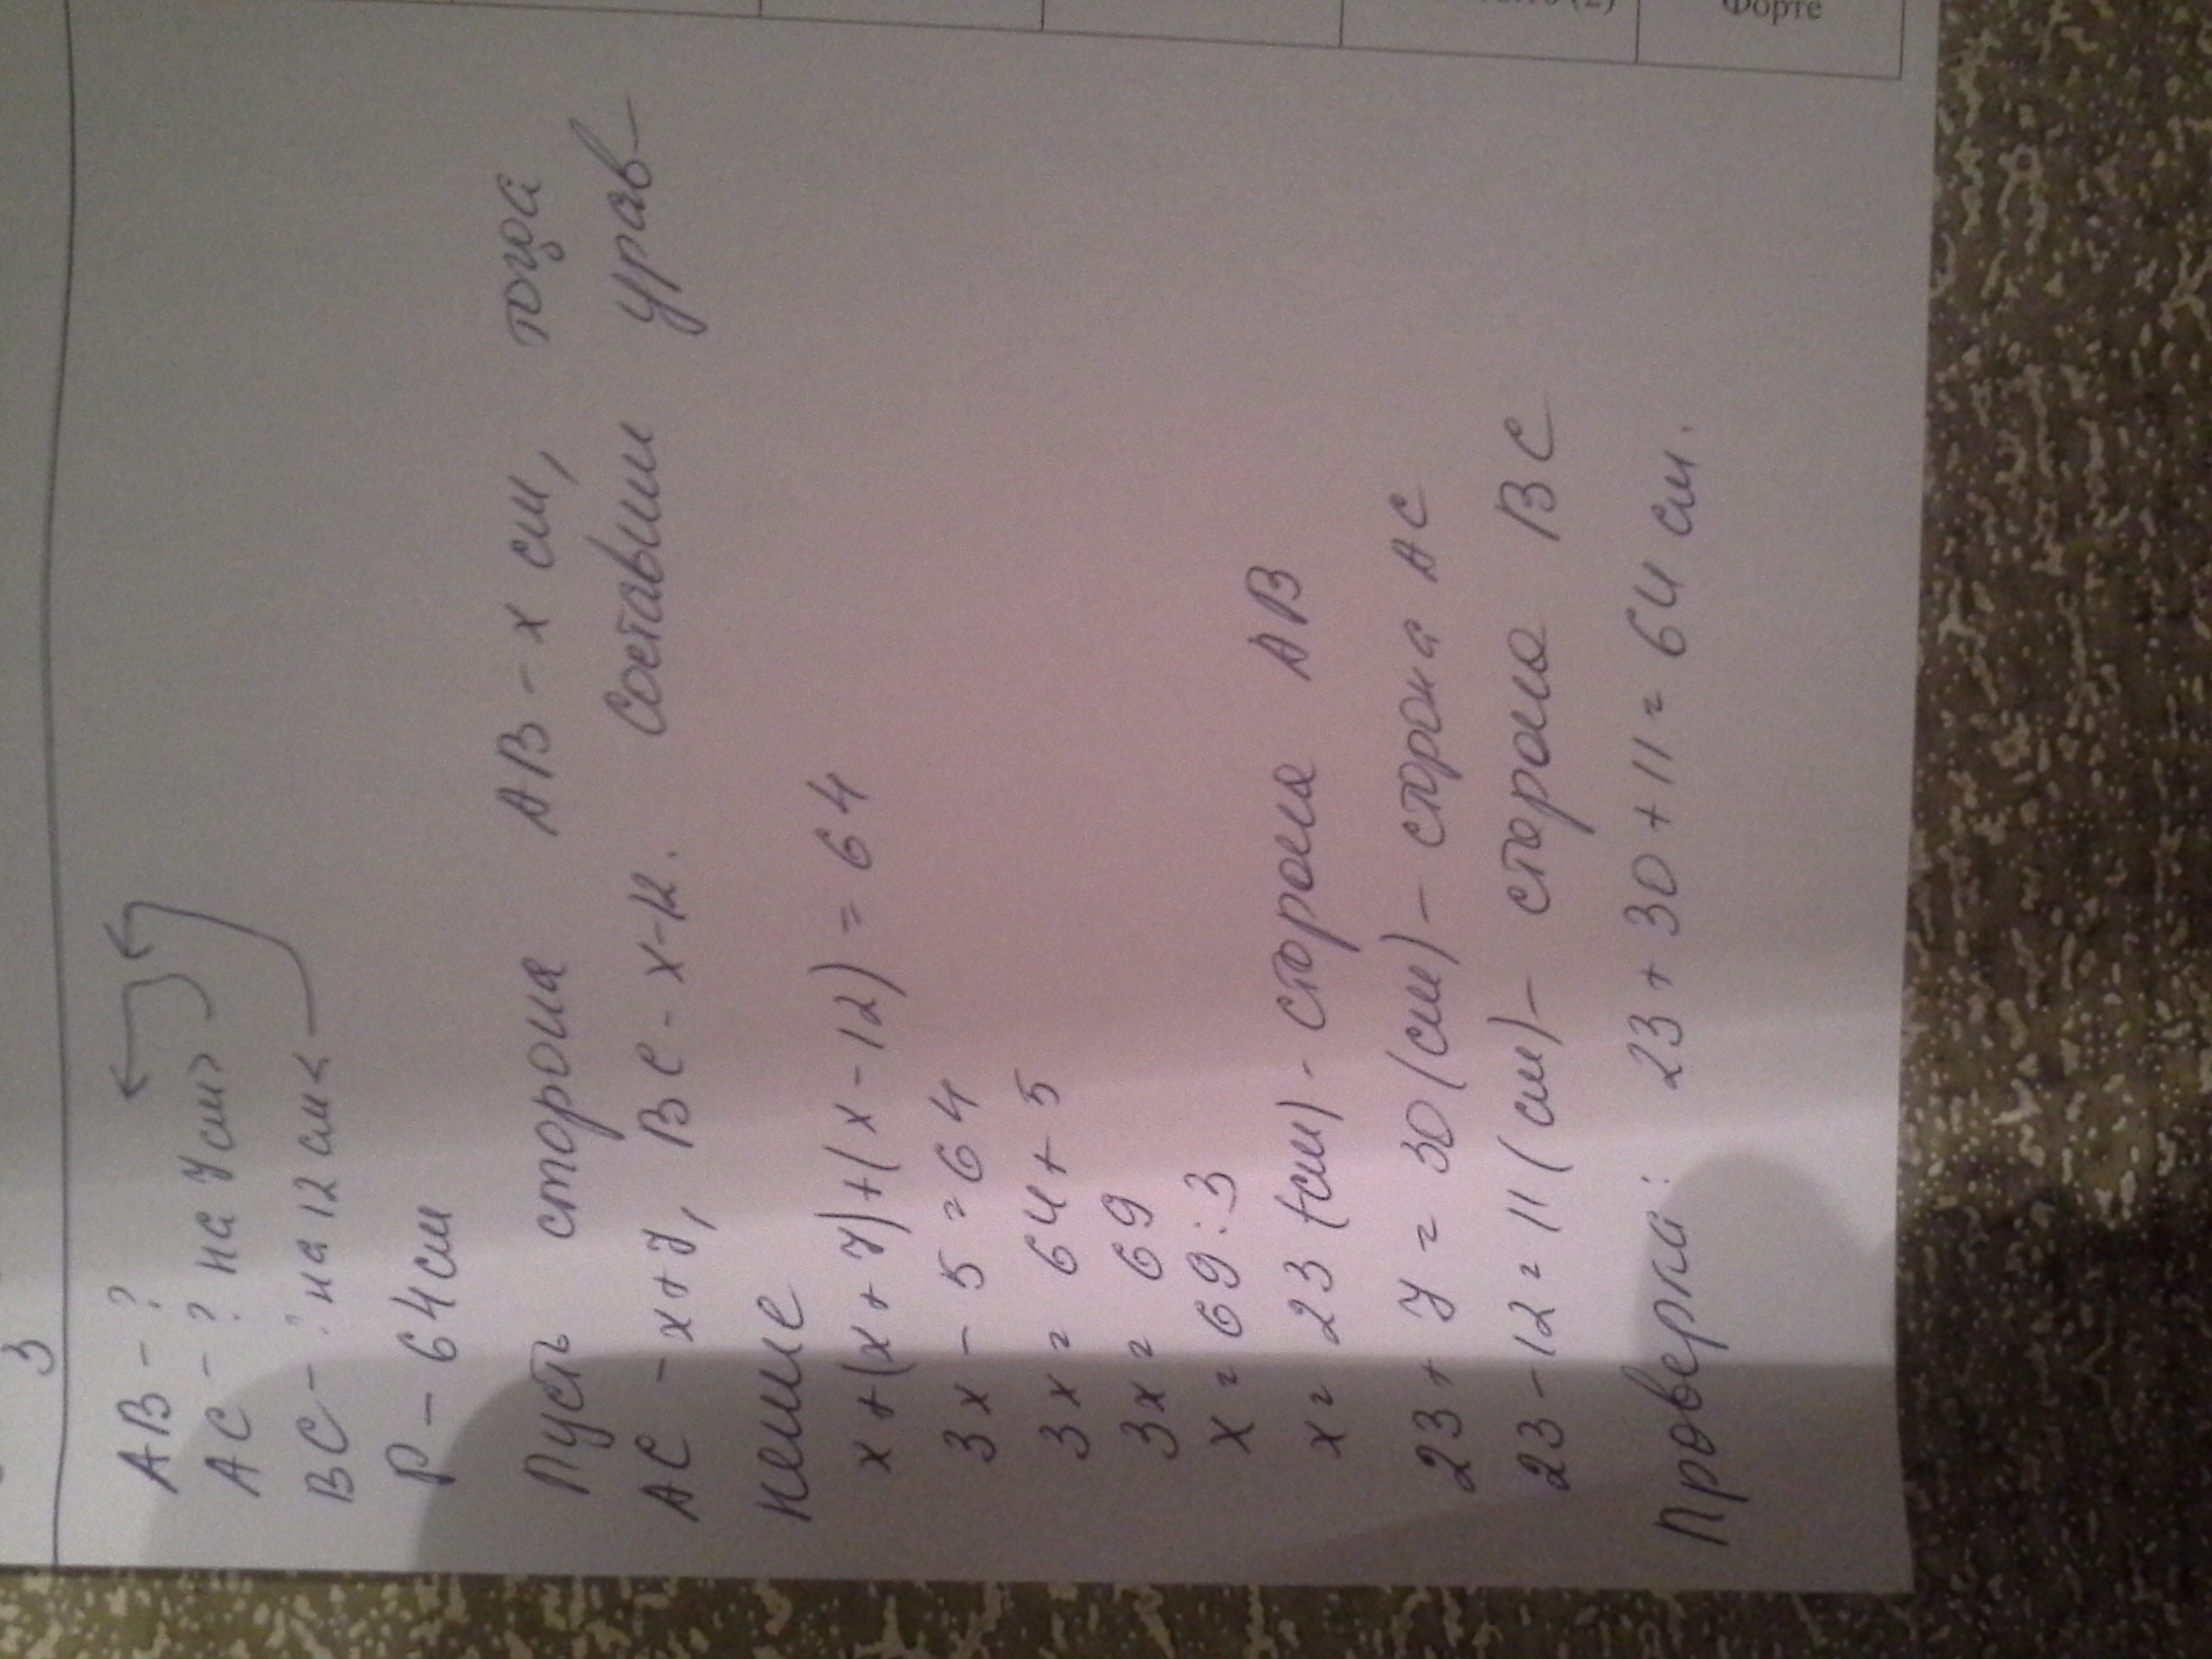 Форте
3
AB - ?
AC - ? на 7 см >
BC - ? на 12 см <
P - 64 см
Пусть сторона AB - x см, тогда
AC - x+7, BC - x-12. Составим урав-
нение
x+(x+7)+(x-12)=64
3x-5=64
3x=64+5
3x=69
x=69:3
x=23 (см) - сторона AB
23+7=30 (см) - сторона AC
23-12=11 (см) - сторона BC
Проверка: 23+30+11=64 см.